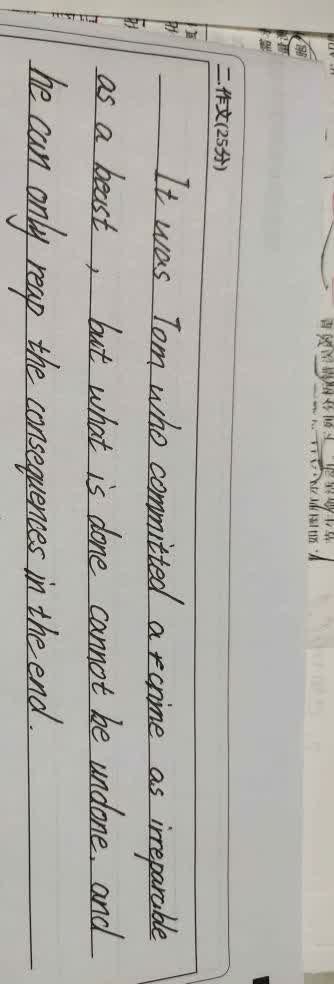 二.作文(25分)
It was Tom who committed a crime as irreparable
as a beast, but what is done cannot be undone, and
he can only reap the consequences in the end.